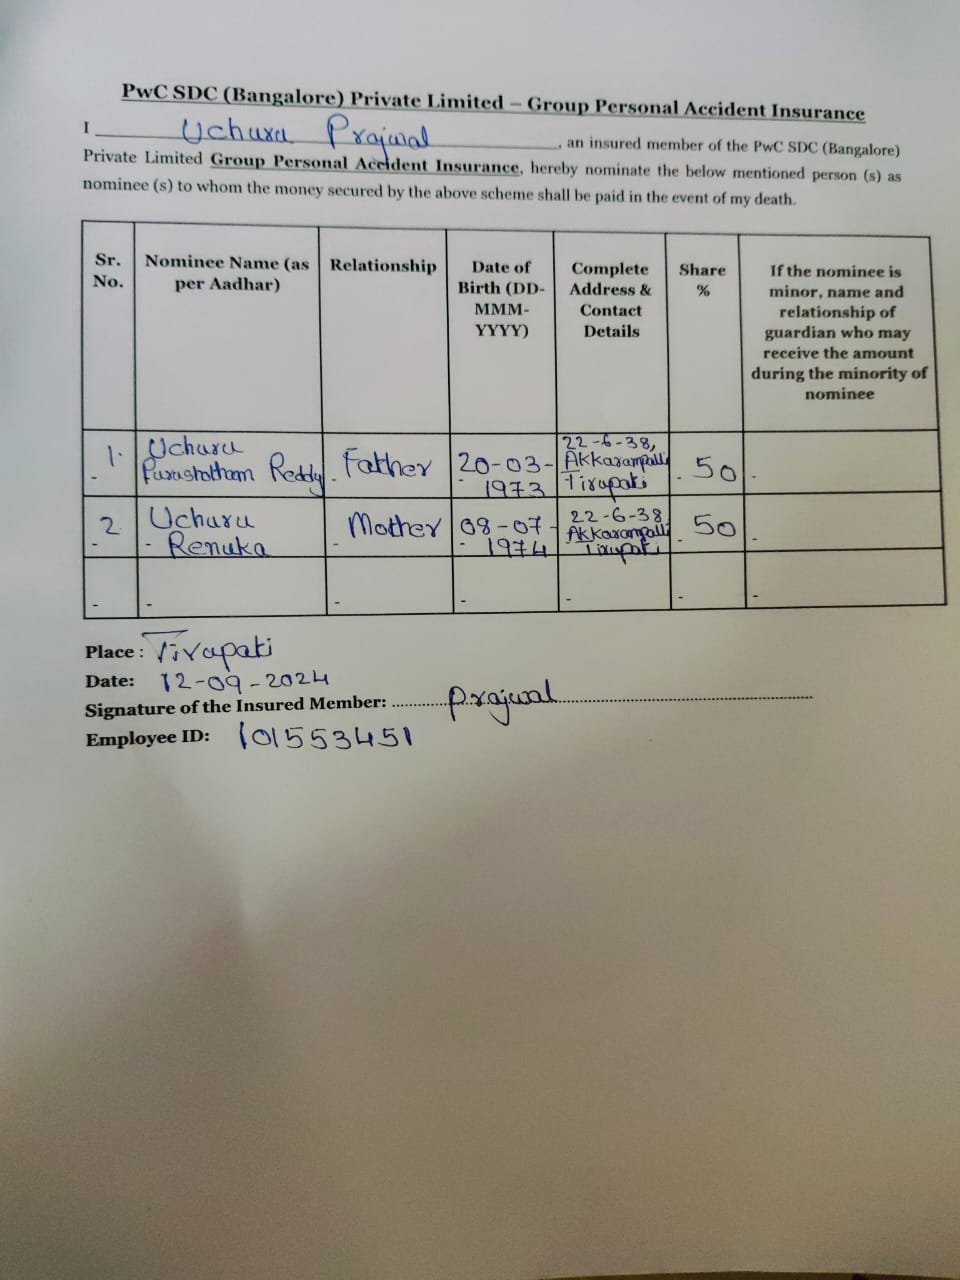 PwC SDC (Bangalore) Private Limited – Group Personal Accident Insurance
I Uchuru Prajwal, an insured member of the PwC SDC (Bangalore)
Private Limited Group Personal Accident Insurance, hereby nominate the below mentioned person (s) as
nominee (s) to whom the money secured by the above scheme shall be paid in the event of my death.
Sr. No.
Nominee Name (as per Aadhar)
Relationship
Date of Birth (DD-MMM-YYYY)
Complete Address & Contact Details
Share %
If the nominee is minor, name and relationship of guardian who may receive the amount during the minority of nominee
1. Uchuru Purushotham Reddy Father 20-03-1973 22-6-38, Akkarampalli Tirupati 50
2. Uchuru Renuka Mother 08-07-1974 22-6-38 Akkarampalli Tirupati 50
Place : Tirupati
Date: 12-09-2024
Signature of the Insured Member: Prajwal
Employee ID: 101553451